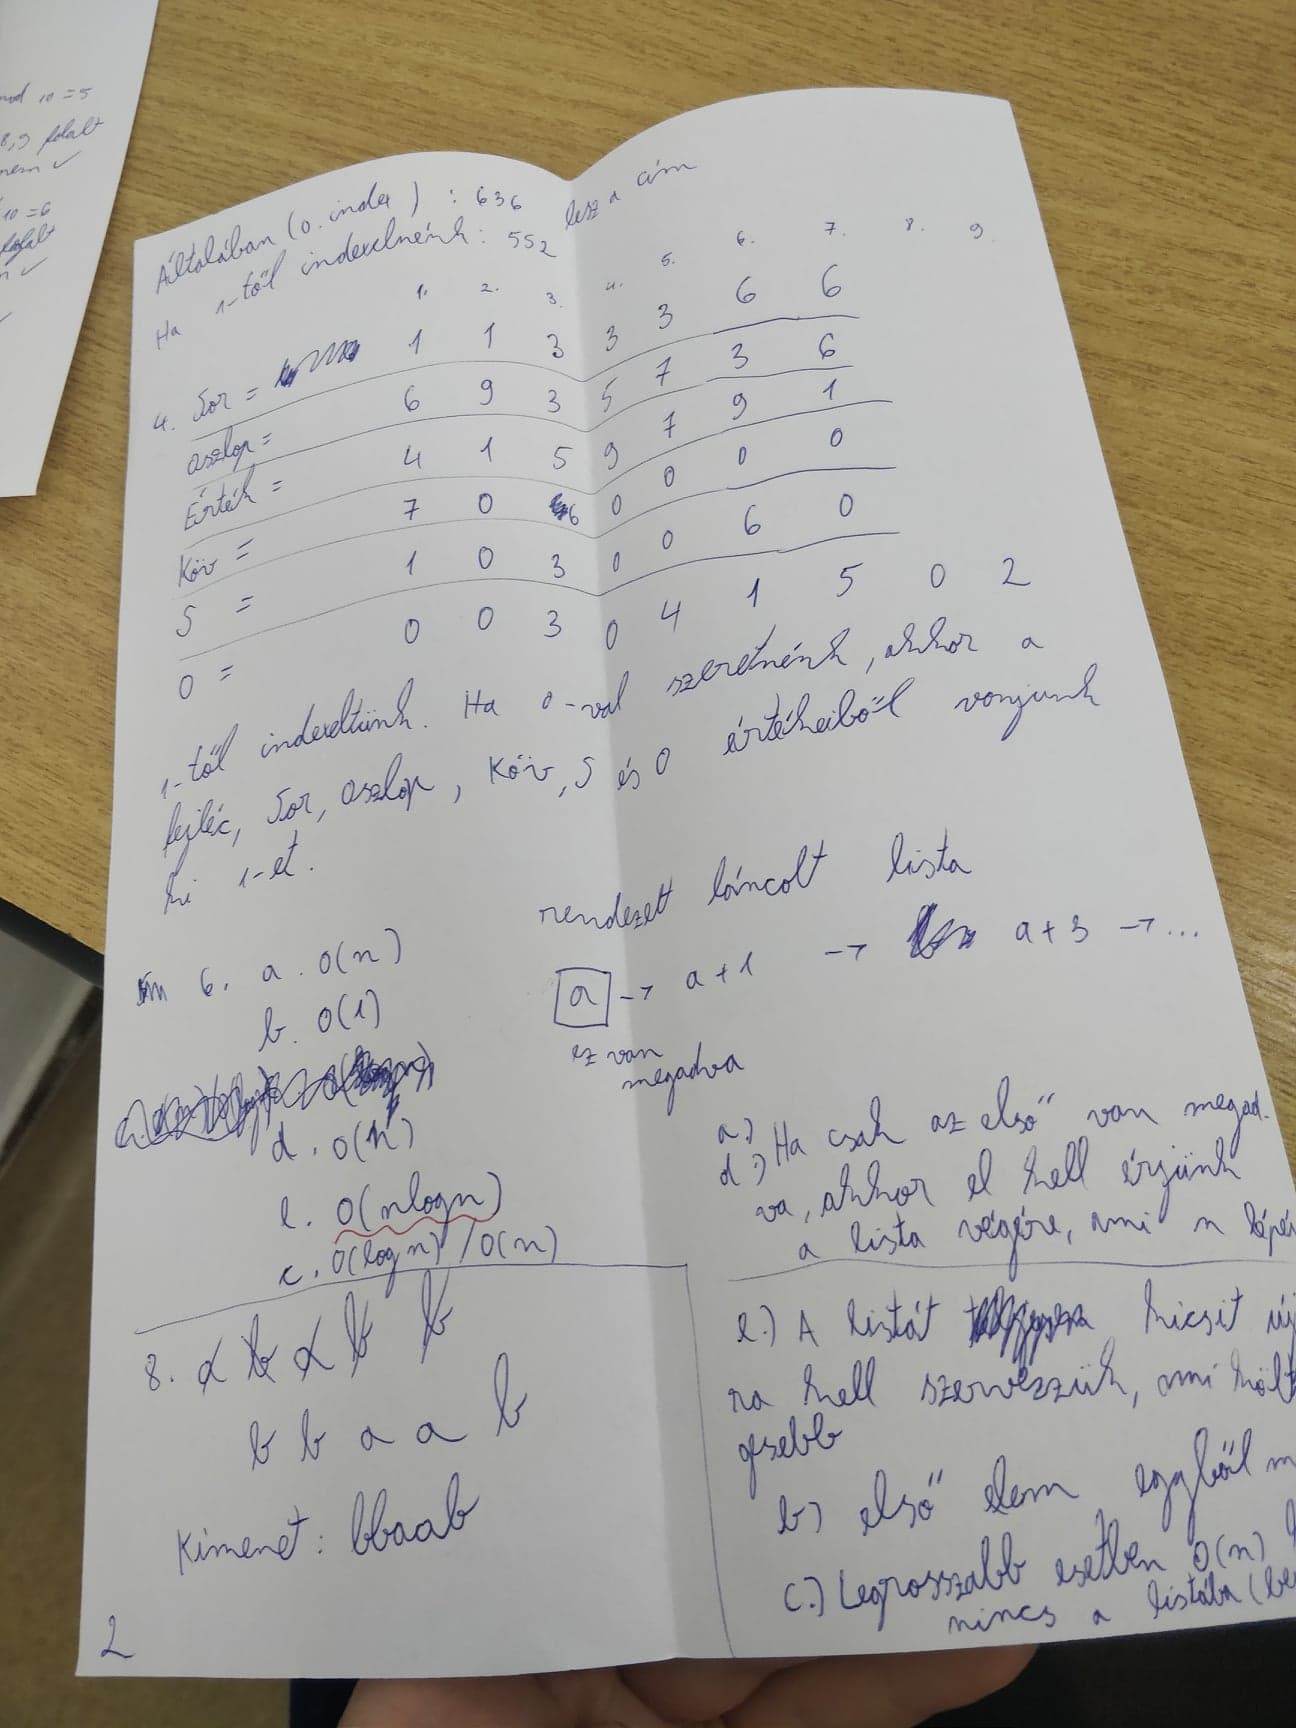 mod 10 = 5
8,9 foglalt
nem ✓
10 = 6
foglalt
✓
Általában (0. index) : 636
Ha 1-től indexelnénk: 552 lesz a cím
1. 2. 3. 4. 5. 6. 7. 8. 9.
4. Sor = 1 1 3 3 3 6 6
oszlop = 6 9 3 5 7 3 6
Érték = 4 1 5 9 7 9 1
Köv = 7 0 6 0 0 0 0
S = 1 0 3 0 0 6 0
O = 0 0 3 0 4 1 5 0 2
1-től indexeltünk. Ha 0-val szeretnénk, akkor a
fejléc, Sor, oszlop, Köv, S és O értékeiből vonjunk
ki 1-et.
rendezett láncolt lista
6. a. O(n)
b. O(1)
d. O(n)
e. O(nlogn)
c. O(logn) / O(n)
a → a+1 → a+3 → ...
ez van
megadva
a.)
d.) Ha csak az első van megad-
va, akkor el kell érjünk
a lista végére, ami n
e.) A listát kicsit
ra kell szervezzük, ami
gesebb
b) első elem egyből
c.) Legrosszabb esetben O(n)
nincs a listába
8. a b a b b
b b a a b
Kimenet: bbaab
2